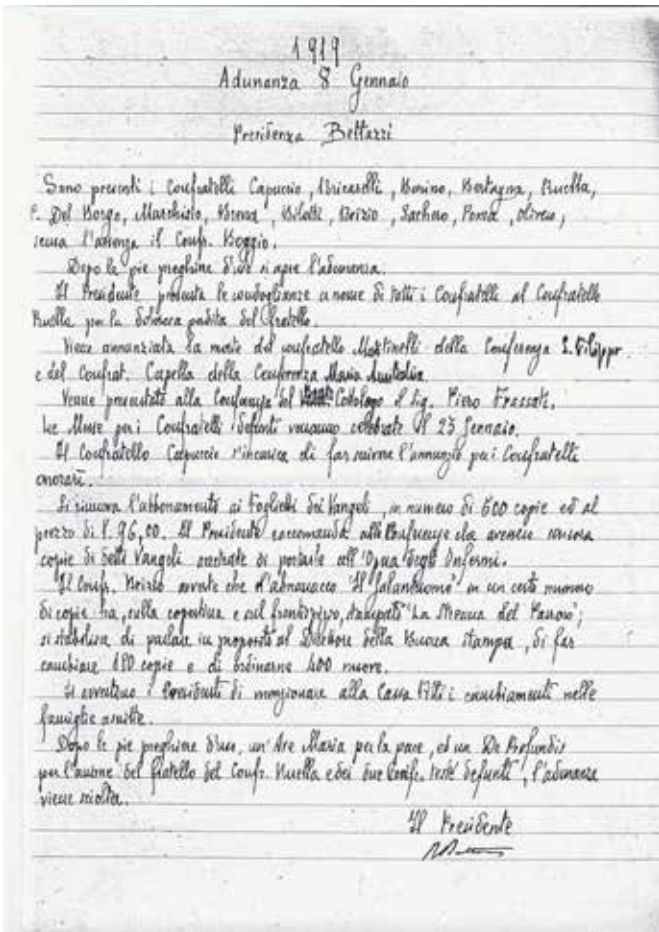 1919
Adunanza 8 Gennaio
Presidenza Bettazzi
Sono presenti i Confratelli Capuccio, Bricarelli, Bonino, Bertagna, Ruella,
C. Del Borgo, Marchisio, Brena, Bilotti, Brizio, Sachero, Ponza, Olivero,
scusa l'assenza il Confr. Boggio.
Dopo le pie preghiere d'uso si apre l'adunanza.
Il Presidente presenta le condoglianze a nome di tutti i Confratelli al Confratello
Ruella per la dolorosa perdita del fratello.
Viene annunziata la morte del confratello Martinelli della Conferenza S. Filippo
e del Confrat. Capella della Conferenza Maria Ausiliatrice.
Venne presentato alla Conferenza del Cottolengo il Sig. Piero Frassati.
Le Messe per i Confratelli defunti verranno celebrate il 23 Gennaio.
Il Confratello Capuccio s'incarica di far scrivere l'annunzio per i Confratelli
onorari.
Si rinnova l'abbonamento ai Foglietti dei Vangeli, in numero di 600 copie ed al
prezzo di £. 96,00. Il Presidente raccomanda alle Conferenze che avessero ancora
copie di detti Vangeli arretrate di portarle all'Opera degli Infermi.
Il Confr. Brizio avverte che l'almanacco "Il Galantuomo" in un certo numero
di copie ha, sulla copertina e sul frontispizio, stampati "La Strenna del Parroco";
si stabilisce di parlare in proposito al Direttore della Buona Stampa, di far
cambiare 120 copie e di ordinarne 400 nuove.
Si avvertono i Presidenti di menzionare alla Cassa Fitti i cambiamenti nelle
famiglie assistite.
Dopo le pie preghiere d'uso, un'Ave Maria per la pace, ed un De Profundis
per l'anime del fratello del Confr. Ruella e dei due Confr. testé defunti, l'adunanza
viene sciolta.
Il Presidente